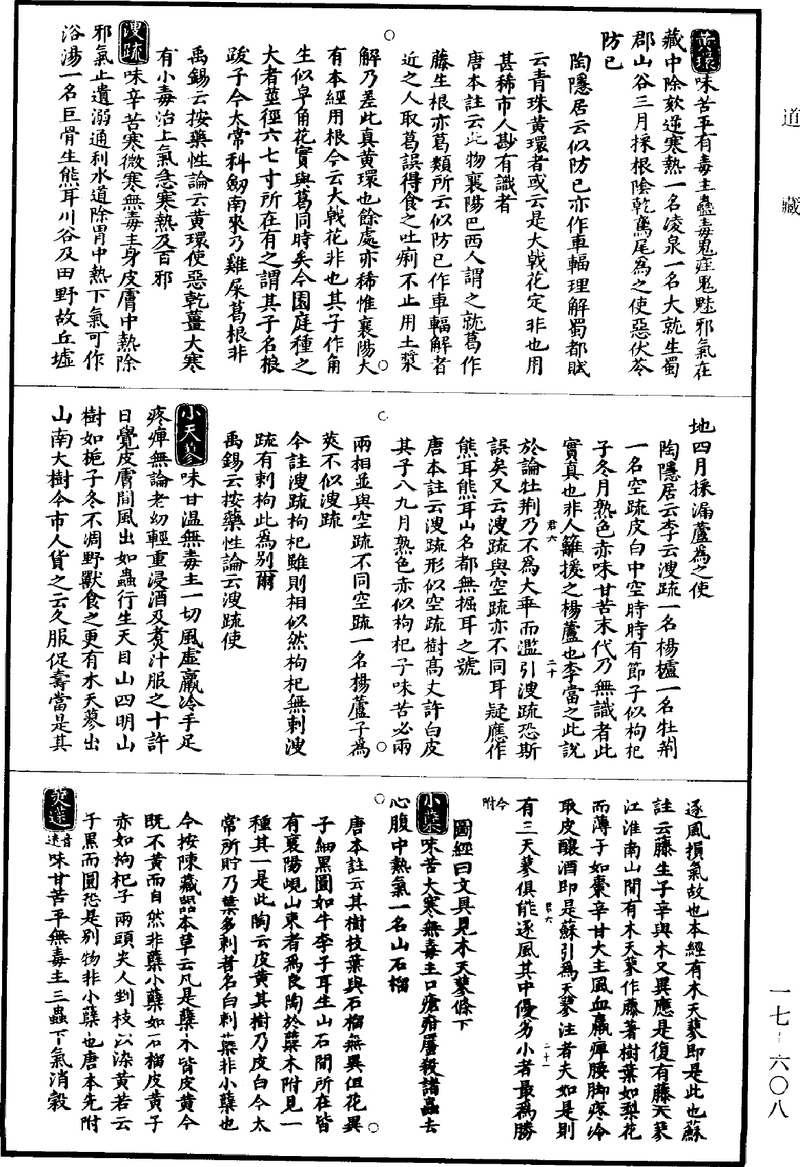 道藏
黃環味苦平有毒主蠱毒鬼疰鬼魅邪氣在
藏中除欬逆寒熱一名凌泉一名大就生蜀
郡山谷三月採根陰乾鳶尾為之使惡伏苓
防已
陶隱居云似防已亦作車輻理解蜀都賦
云青珠黃環者或云是大戟花定非也用
甚稀市人尠有識者
唐本註云此物襄陽巴西人謂之就葛作
藤生根亦葛類所云似防已作車輻解者
近之人取葛誤得食之吐痢不止用土漿
解乃差此真黃環也餘處亦稀惟襄陽大
有本經用根今云大戟花非也其子作角
生似皁角花實與葛同時矣今園庭種之
大者莖徑六七寸所在有之謂其子名狼
跋子今太常科劒南來乃雞屎葛根非
禹錫云按藥性論云黃環使惡乾薑大寒
有小毒治上氣急寒熱及百邪
溲疏味辛苦寒微寒無毒主身皮膚中熱除
邪氣止遺溺通利水道除胃中熱下氣可作
浴湯一名巨骨生熊耳川谷及田野故丘墟
地四月採漏蘆為之使
陶隱居云李云溲疏一名楊櫨一名牡荆
一名空疏皮白中空時時有節子似枸杞
子冬月熟色赤味甘苦末代乃無識者此
實真也非人籬援之楊蘆也李當之此說
君六
二十
於論牡荆乃不為大乖而濫引溲疏恐斯
誤矣又云溲疏與空疏亦不同耳疑應作
熊耳熊耳山名都無掘耳之號
唐本註云溲疏形似空疏樹高丈許白皮
其子八九月熟色赤似枸杞子味苦必兩
兩相並與空疏不同空疏一名楊蘆子為
莢不似溲疏
今註溲疏枸杞雖則相似然枸杞無刺溲
疏有刺枸此為別爾
禹錫云按藥性論云溲疏使
小天蓼味甘温無毒主一切風虛羸冷手足
疼痺無論老幼輕重浸酒及煮汁服之十許
日覺皮膚間風出如蟲行生天目山四明山
樹如栀子冬不凋野獸食之更有木天蓼出
山南大樹今市人貨之云久服促壽當是其
逐風損氣故也本經有木天蓼即是此也蘇
註云藤生子辛與木又異應是復有藤天蓼
江淮南山間有木天蓼作藤著樹葉如梨花
而薄子如棗辛甘大主風血羸痺腰脚疼冷
取皮釀酒即是蘇引為天蓼注者夫如是則
君六
二十一
有三天蓼俱能逐風其中優劣小者最為勝
今附
圖經曰文具見木天蓼條下
小蘗味苦大寒無毒主口瘡疳䘌殺諸蟲去
心腹中熱氣一名山石榴
唐本註云其樹枝葉與石榴無異但花異
子細黑圓如牛李子耳生山石間所在皆
有襄陽峴山東者為良陶於蘗木附見一
種其一是此陶云皮黃其樹乃皮白今太
常所貯乃葉多刺者名白刺蘗非小蘗也
今按陳藏器本草云凡是蘗木皆皮黃今
既不黃而自然非蘗小蘗如石榴皮黃子
赤如枸杞子兩頭尖人剉枝以染黃若云
子黑而圓恐是別物非小蘗也唐本先附
莢蒾音迷味甘苦平無毒主三蟲下氣消穀
一七-六〇八